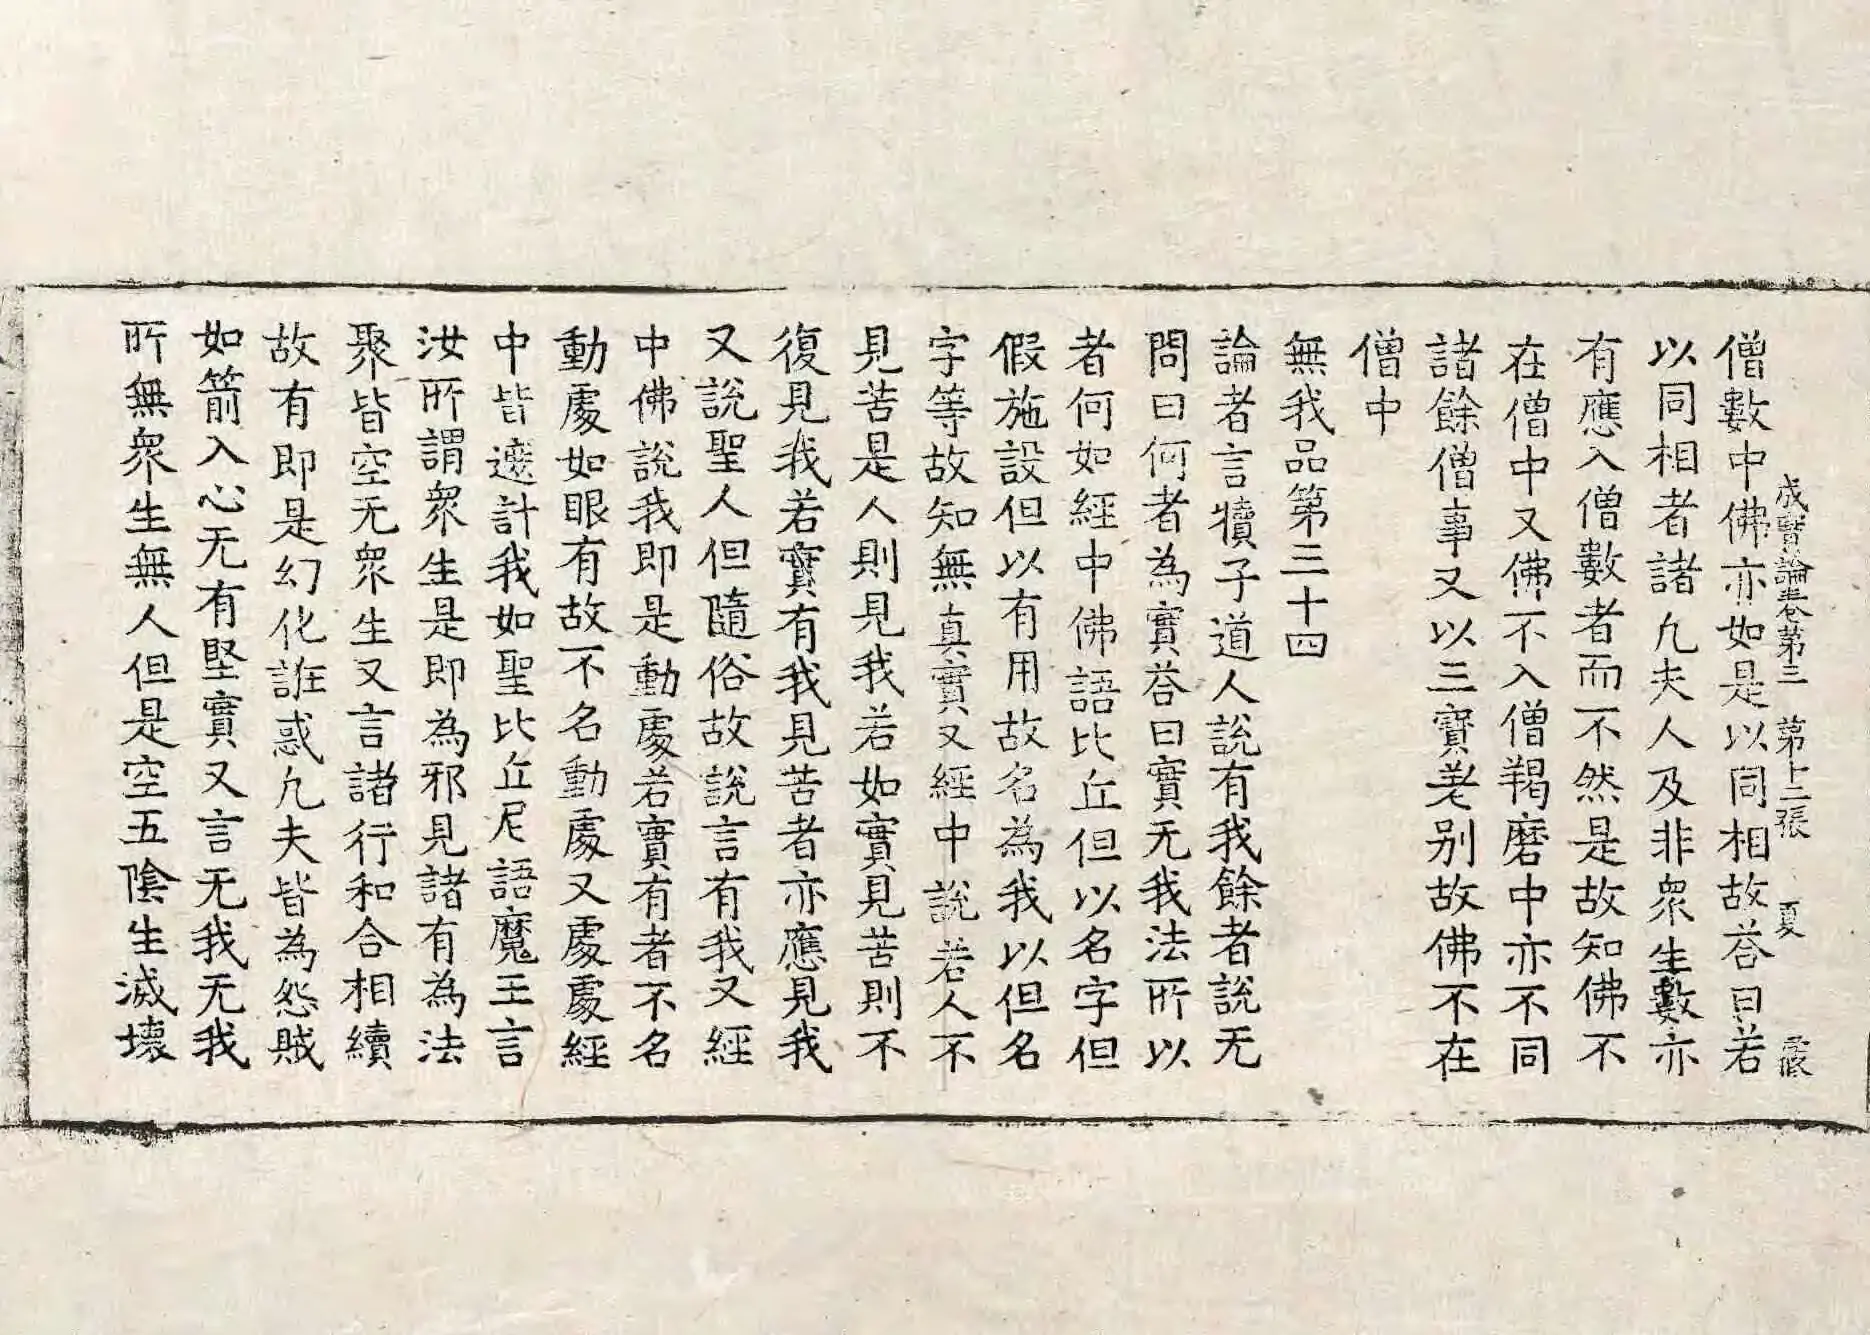 成實論卷第三 第十二張 夏
僧數中佛亦如是以同相故荅曰若
以同相者諸凡夫人及非衆生數亦
有應入僧數者而不然是故知佛不
在僧中又佛不入僧羯磨中亦不同
諸餘僧事又以三寶差别故佛不在
僧中
無我品第三十四
論者言犢子道人說有我餘者說无
問曰何者為實荅曰實无我法所以
者何如經中佛語比丘但以名字但
假施設但以有用故名為我以但名
字等故知無真實又經中說若人不
見苦是人則見我若如實見苦則不
復見我若實有我見苦者亦應見我
又說聖人但隨俗故說言有我又經
中佛說我即是動處若實有者不名
動處如眼有故不名動處又處處經
中皆遮計我如聖比丘尼語魔王言
汝所謂衆生是即為邪見諸有為法
聚皆空无衆生又言諸行和合相續
故有即是幻化誑惑凡夫皆為怨賊
如箭入心无有堅實又言无我无我
所無衆生無人但是空五陰生滅壞